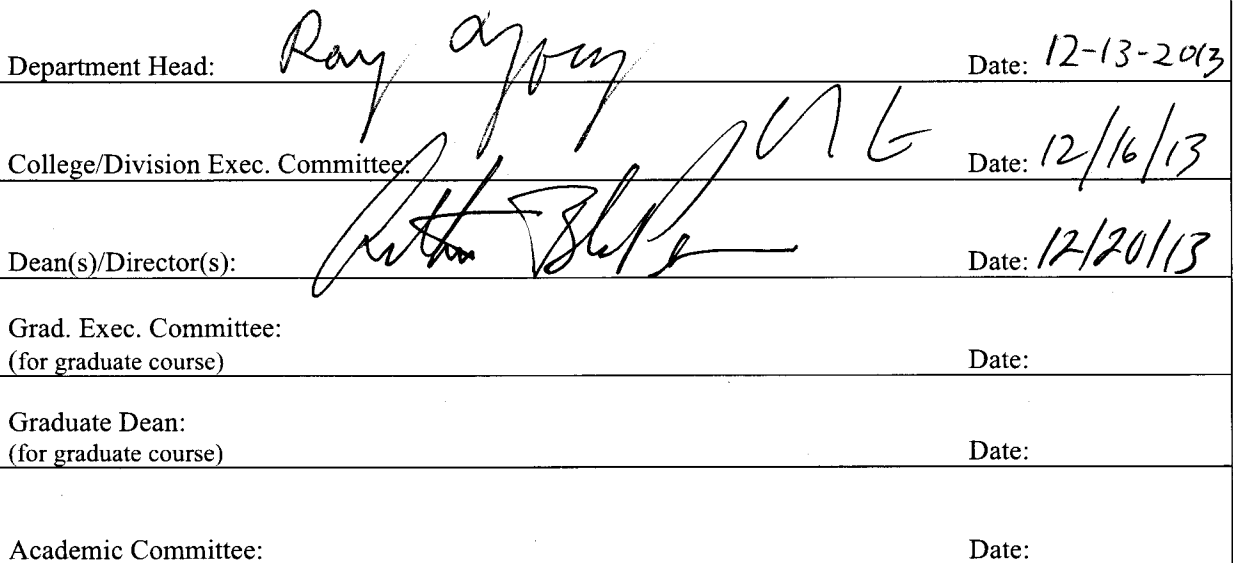 Department Head: Ray Date: 12-13-2013
College/Division Exec. Committee: Date: 12/16/13
Dean(s)/Director(s): Date: 12/20/13
Grad. Exec. Committee:
(for graduate course) Date:
Graduate Dean:
(for graduate course) Date:
Academic Committee: Date: